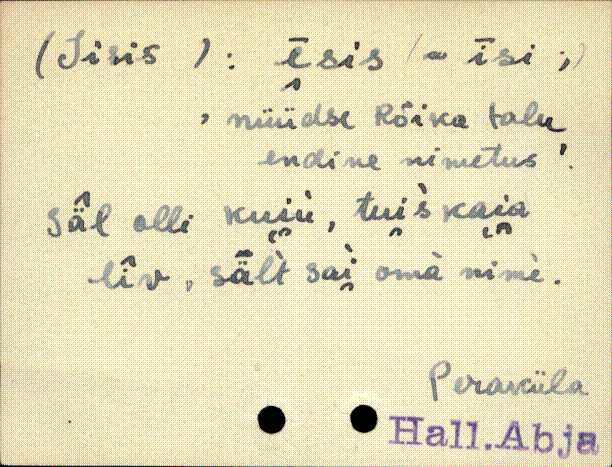 (Iisis): ēsis (~ īsi;)
, nüüdse Rõika talu
endine nimetus'.
sä̂l olli kuiù, tuìs kaia
lîv, sä̀lt saì omà nimè.
Peraküla
Hall. Abja